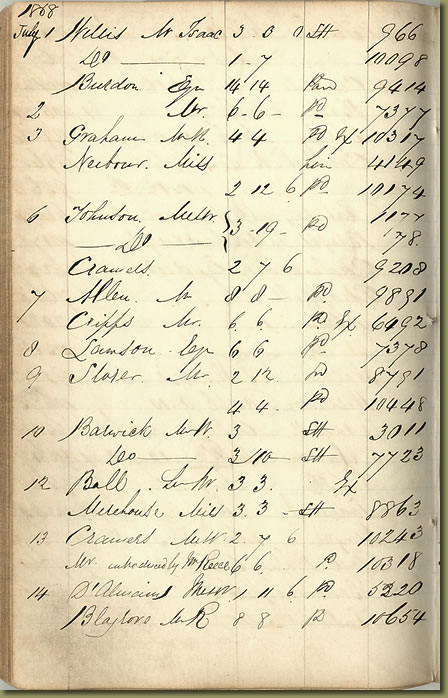 1868
July 1 Willis Mr Isaac 3 . 3 . 0 SH 966
Do 1 - 7 10098
Burdon Esq 14 14 Paid 9414
2 Mr. 6 - 6 - Pd 7377
3 Graham Mr R. 4 4 Pd Ex 10317
Neibour. Miss 4149
2 12 6 Pd 10174
6 Johnson. Messrs 3 - 19 - Pd 1177
Do 178
Cramers. 2 7 6 9208
7 Allen. Mr 8 8 - Pd 9891
Cripps Mr. 6 . 6 Pd Ex 6492
8 Lawson Esq 6 6 Pd 7378
9 Mr. 2 12 . Pd 8791
4 4 . Pd 10448
10 Barwick Mr W. 3 SH 3011
Do 3/10 - SH 7723
12 Ball . 3 3 . Ex
Miss 3 . 3 - SH 8863
13 Cramers 2 . 7 6 10243
Mr. introduced by Mr Reece 6 6 . P. 10318
14 D'Almaine Messrs 1 11 6 Pd 5220
Blagrove Mr R 8 8 P 10654